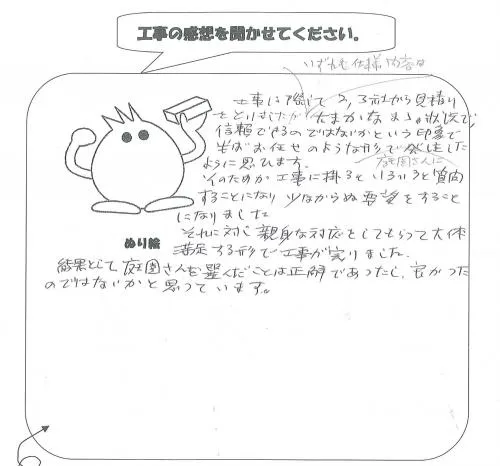 工事の感想を聞かせてください。
いずれも仕様、内容は
工事に際して2,3社から見積り
をとりましたが 大まかなままの状況で
信頼できるのではないかという印象で
半ばお任せのような形で発注した
庭園さんに
ように思います。
そのためか工事に掛るといろいろと質問
することになり 少なからぬ要望をすること
になりました
それに対し親身な対応をしてもらって大体
ぬり絵
満足する形で工事が完りました。
結果として庭園さんを選んだことは正解であったし、良かった
のではないかと思っています。